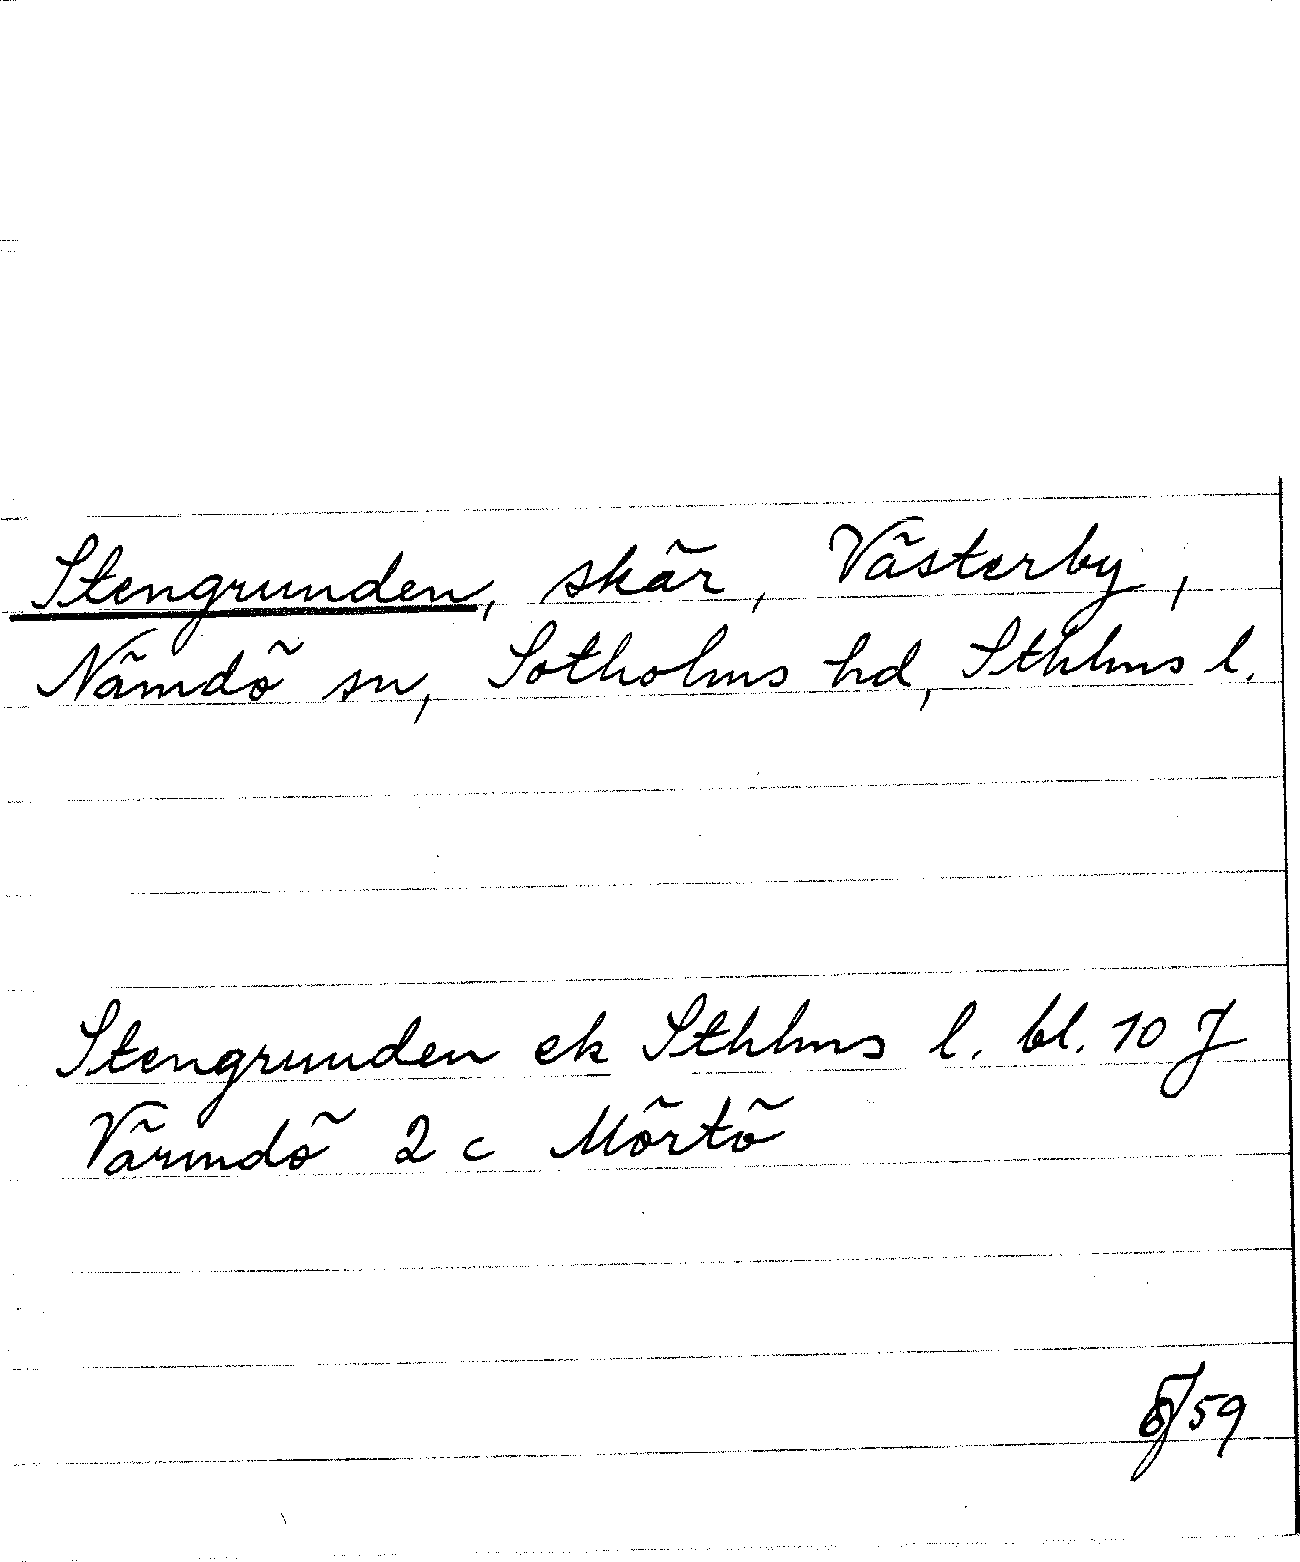 Stengrunden, skär, Västerby,
Nämdö sn, Sotholms hd, Sthlms l.
Stengrunden ek Sthlms l. bl. 10 J
Värmdö 2 c Mörtö
59